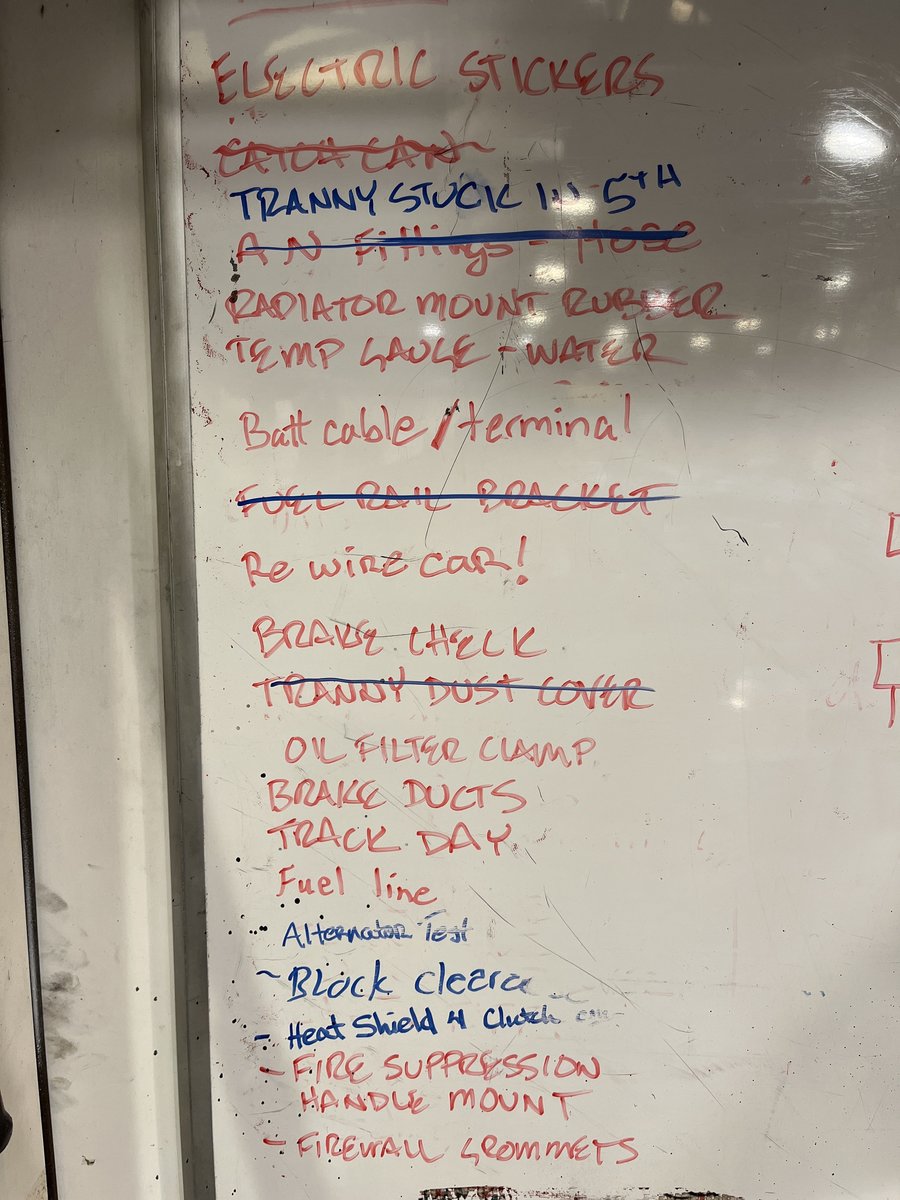 ELECTRIC STICKERS
CATCH CAN
TRANNY STUCK IN 5TH
AN Fittings - Hose
RADIATOR MOUNT RUBBER
TEMP GAUGE - WATER
Batt cable/terminal
FUEL RAIL BRACKET
Re wire car!
BRAKE CHECK
TRANNY DUST COVER
OIL FILTER CLAMP
BRAKE DUCTS
TRACK DAY
Fuel line
- Alternator Test
~ Block
- Heat Shield 4 Clutch
- FIRE SUPPRESSION
HANDLE MOUNT
- FIREWALL GROMMETS